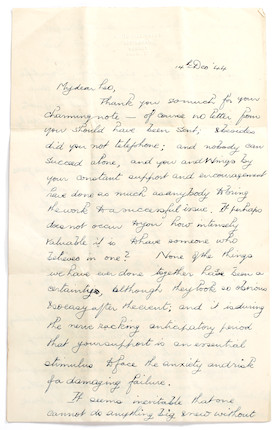 14th Dec '44
My dear Leo,
Thank you so much for your
charming note — of course no letter from
you should have been sent; & besides
did you not telephone; and nobody can
succeed alone, and you and Wings by
your constant support and encouragement
have done as much as anybody to bring
the work to a successful issue. It perhaps
does not occur to you how intensely
valuable it is to have someone who
believes in one? None of the things
we have done together have been a
certainty, although they look so obvious
& so easy after the event; and it is during
the nerve racking anticipatory period
that your support is an essential
stimulus to face the anxiety and risk
of a damaging failure.
It seems inevitable that one
cannot do anything big & new without